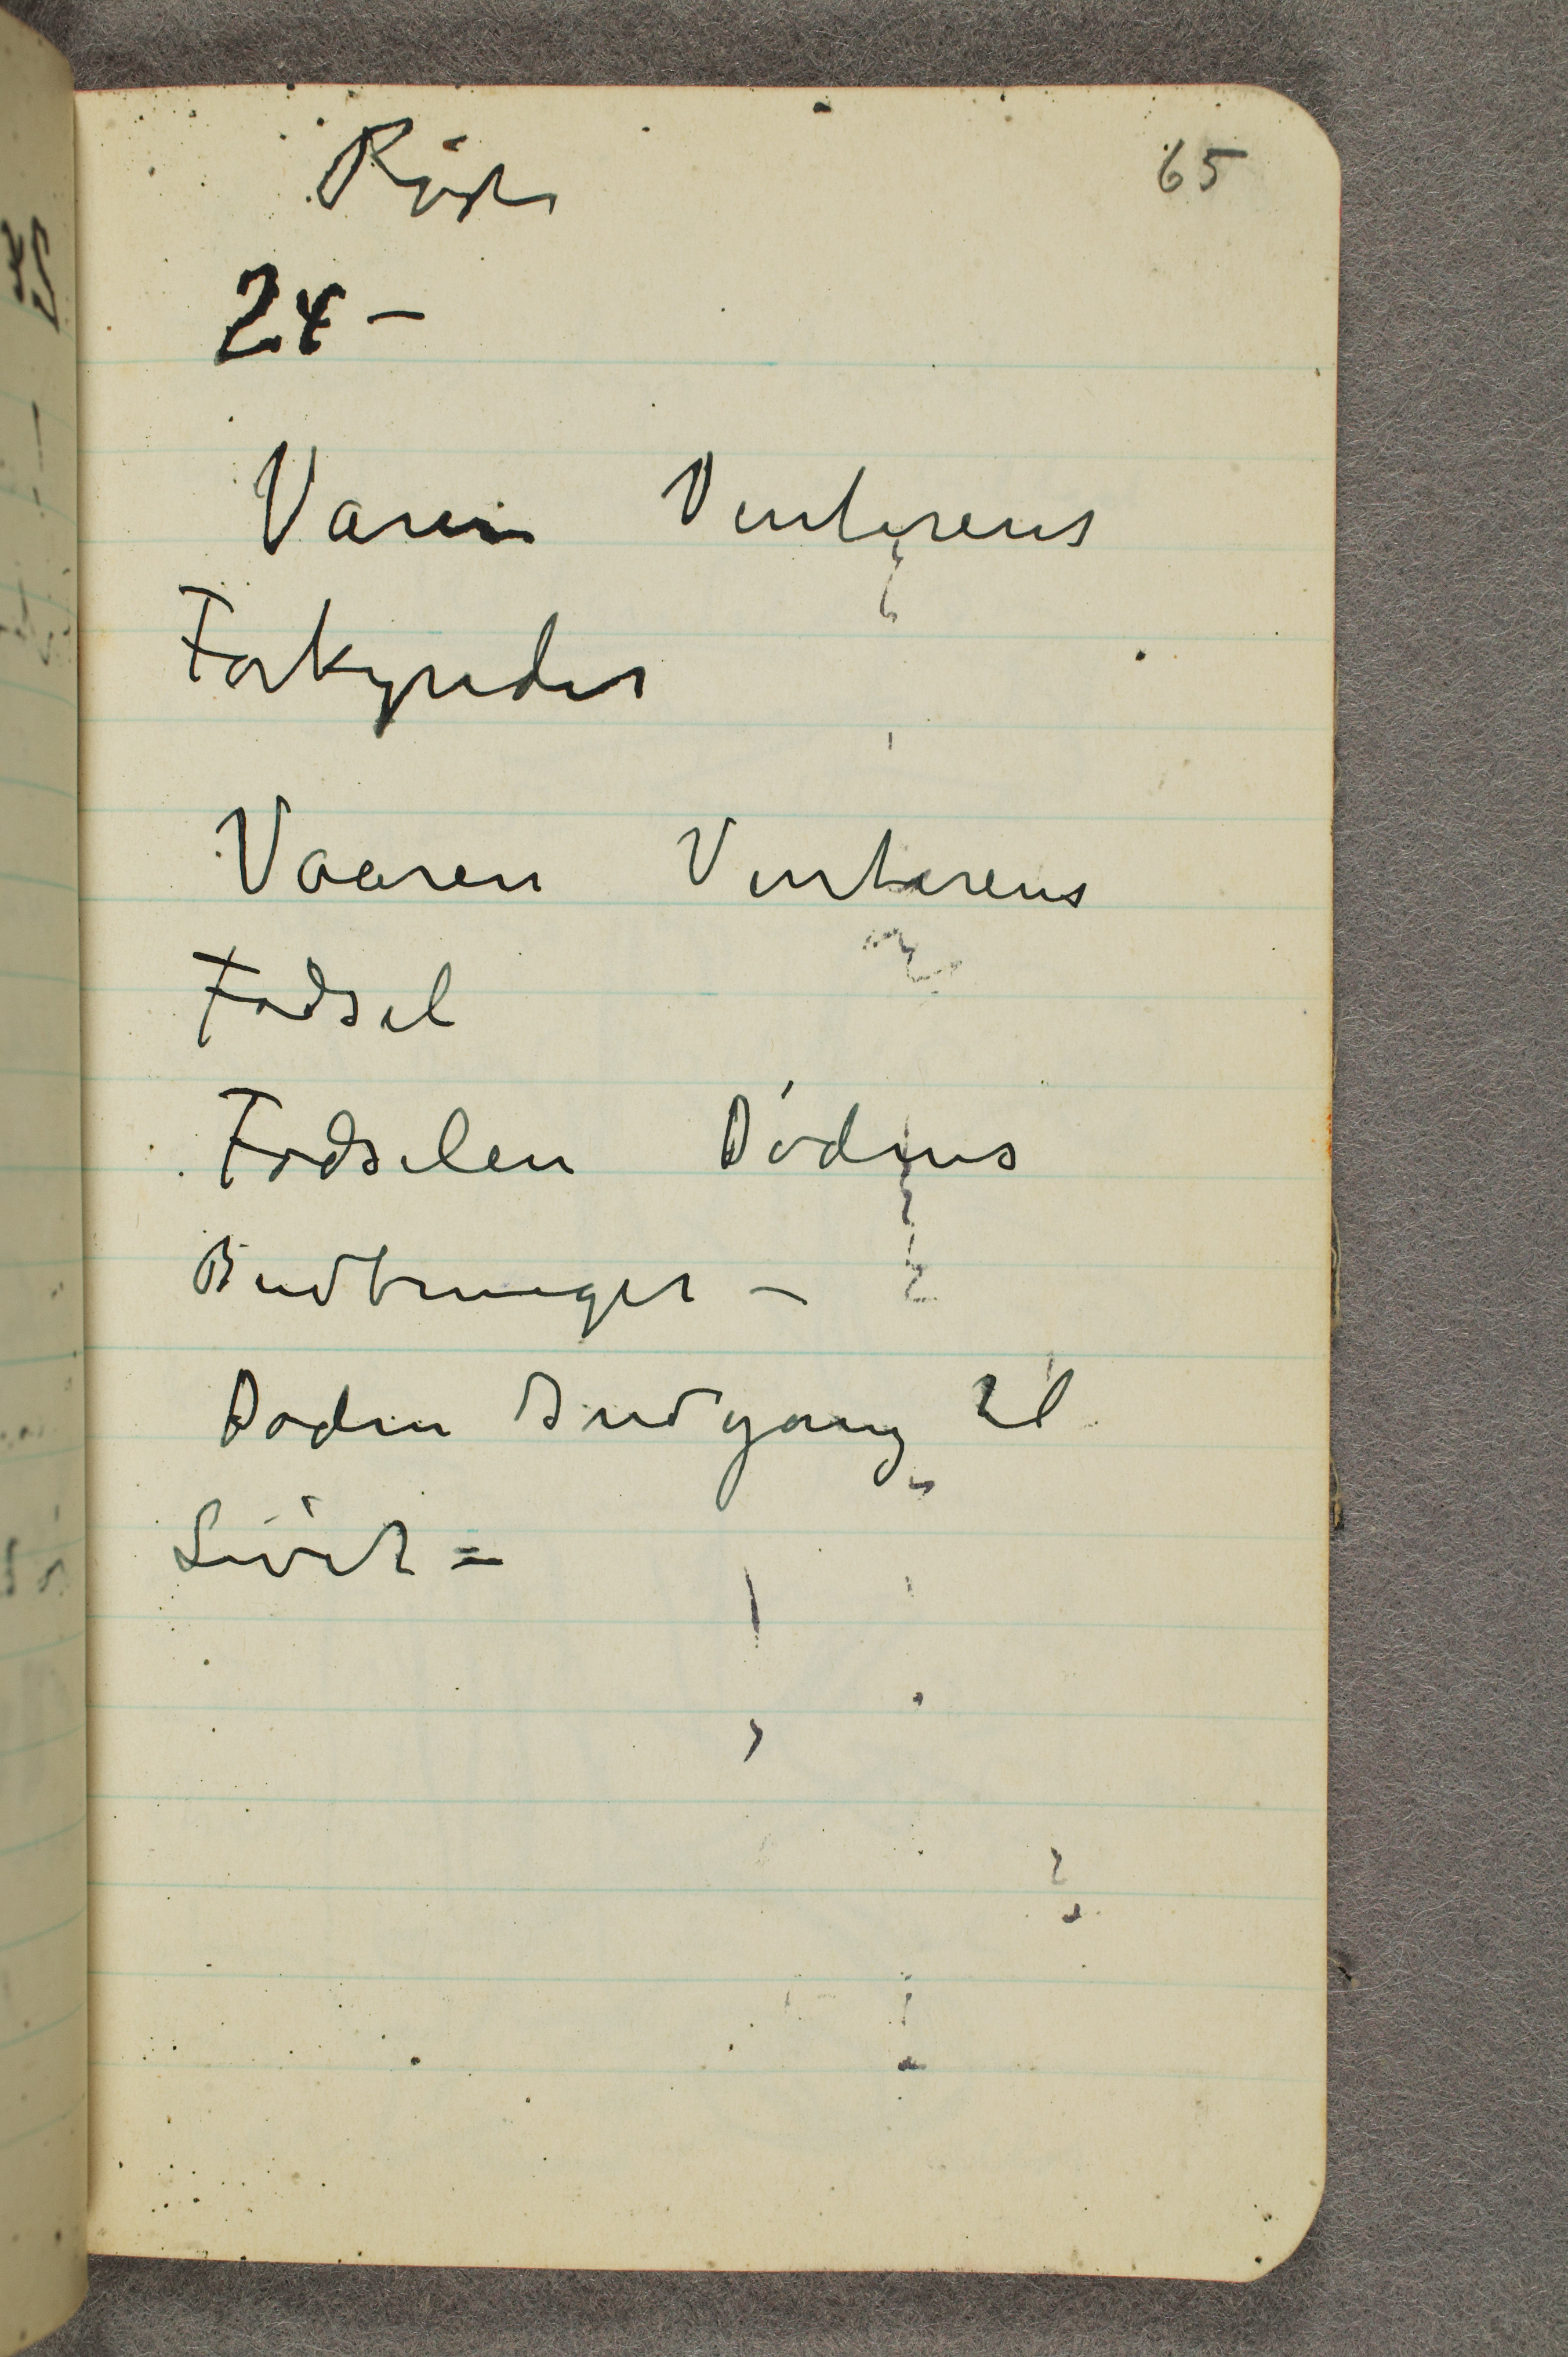 65
24 –
Varen Vinterens
Forkynder
Vaaren Vinterens
Fødsel
Fødselen Dødens
Budbringer –
Døden Indgang til
Livet –